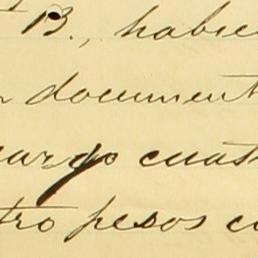 B., habie
documento
cargo cuat
tro pesos c